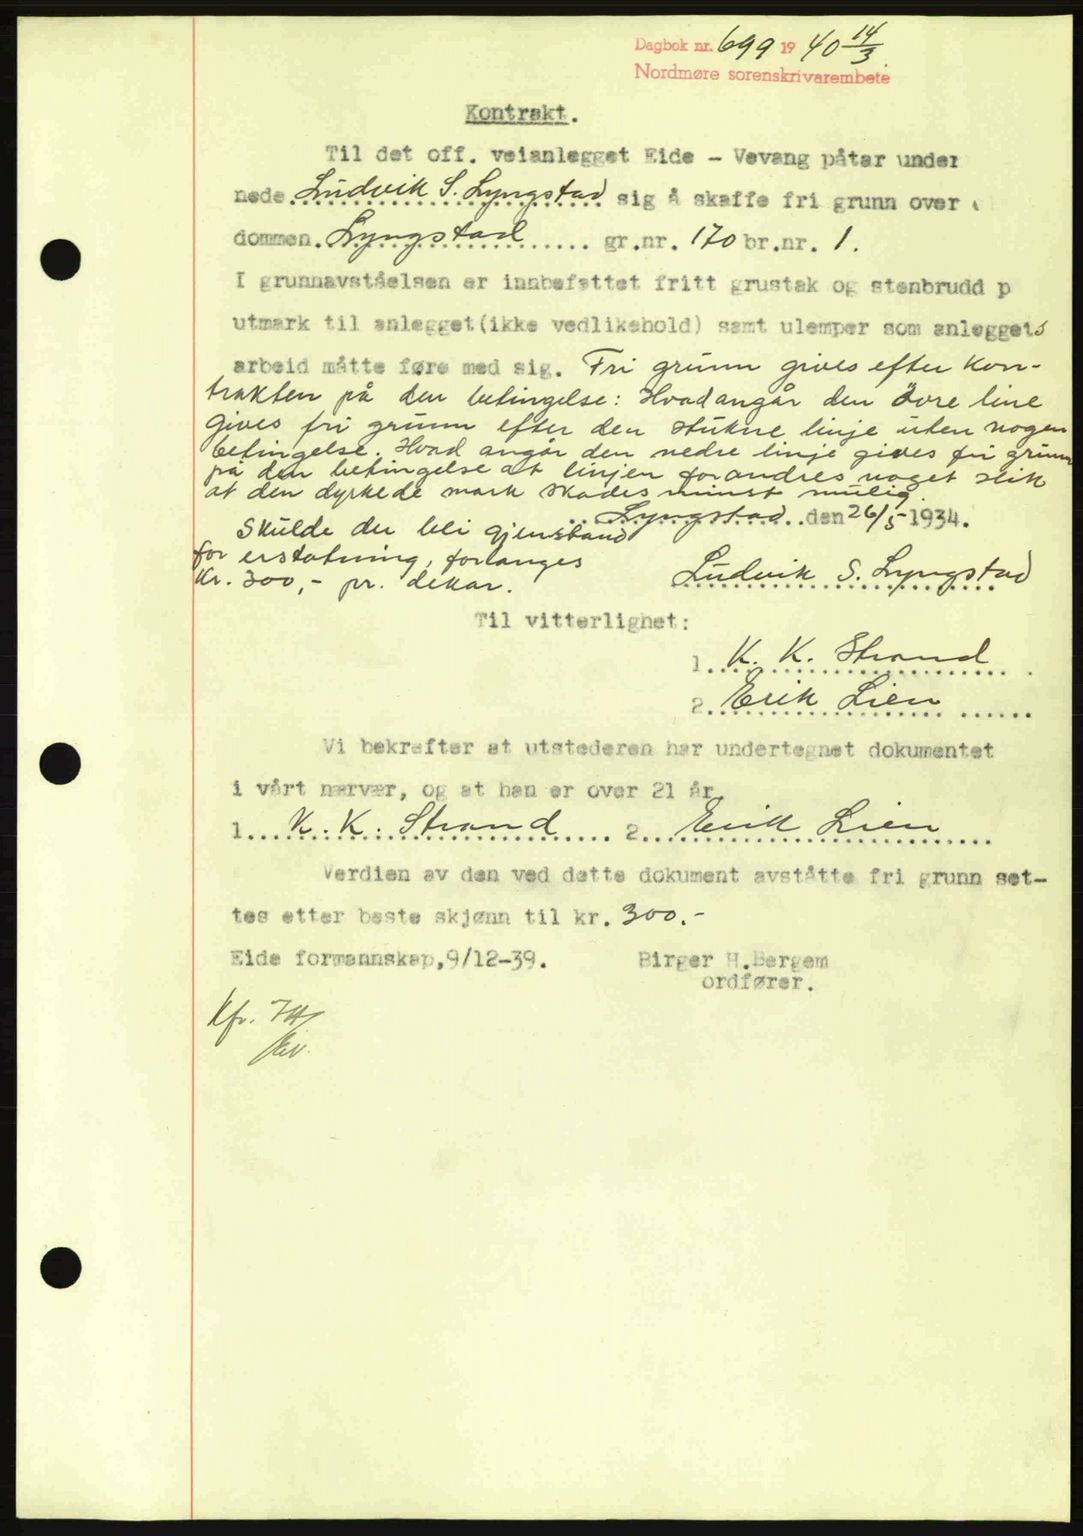 Dagbok nr. 699 19 40 14/3.
Nordmøre sorenskrivarembete
Kontrakt.
Til det off. veianlegget Eide - Vevang påtar under
nede. Ludvik S. Lyngstad sig å skaffe fri grunn over
dommen. Lyngstad gr.nr. 170 br.nr. 1.
I grunnavståelsen er innbefattet fritt grustak og stenbrudd p
utmark til anlegget(ikke vedlikehold) samt ulemper som anleggets
arbeid måtte føre med sig. Fri grunn gives efter Kon-
trakten på den betingelse: Hvad angår den övre line
gives fri grunn efter den stukne linje uten nogen
betingelse. Hvad angår den nedre linje gives fri grunn
på den betingelse at linjen forandres noget slik
at den dyrkede mark skades minst mulig.
Lyngstad den 26/5-1934.
Skulde der bli gjenstand
for erstatning, forlanges
Kr. 300,- pr. dekar.
Ludvik S. Lyngstad
Til vitterlighet:
1. K. K. Strand
2. Erik Lien
Vi bekrefter at utstederen har undertegnet dokumentet
i vårt nærvær, og at han er over 21 år.
1. K. K. Strand 2. Erik Lien
Verdien av den ved dette dokument avståtte fri grunn set-
tes etter beste skjønn til kr. 300.-
Eide formannskap,9/12-39. Birger H.Bergem
ordfører.
Kfr.